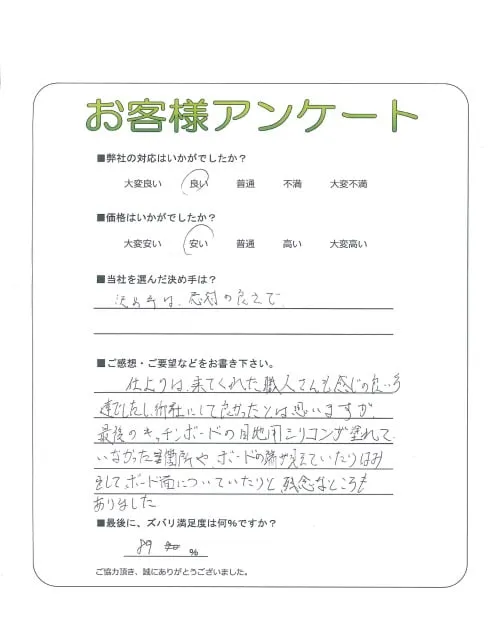 お客様アンケート
■弊社の対応はいかがでしたか？
大変良い 良い 普通 不満 大変不満
■価格はいかがでしたか？
大変安い 安い 普通 高い 大変高い
■当社を選んだ決め手は？
決め手は、応対の良さで
■ご感想・ご要望などをお書き下さい。
仕上りは、来てくれた職人さんも感じの良い方
達でしたし、御社にして良かったとは思いますが、
最後のキッチンボードの目地用シリコンが塗れて
いなかった箇所や、ボードの端が見えていたりはみ
出して、ボード面についていたりと残念なところも
ありました
■最後に、ズバリ満足度は何％ですか？
89 %
ご協力頂き、誠にありがとうございました。